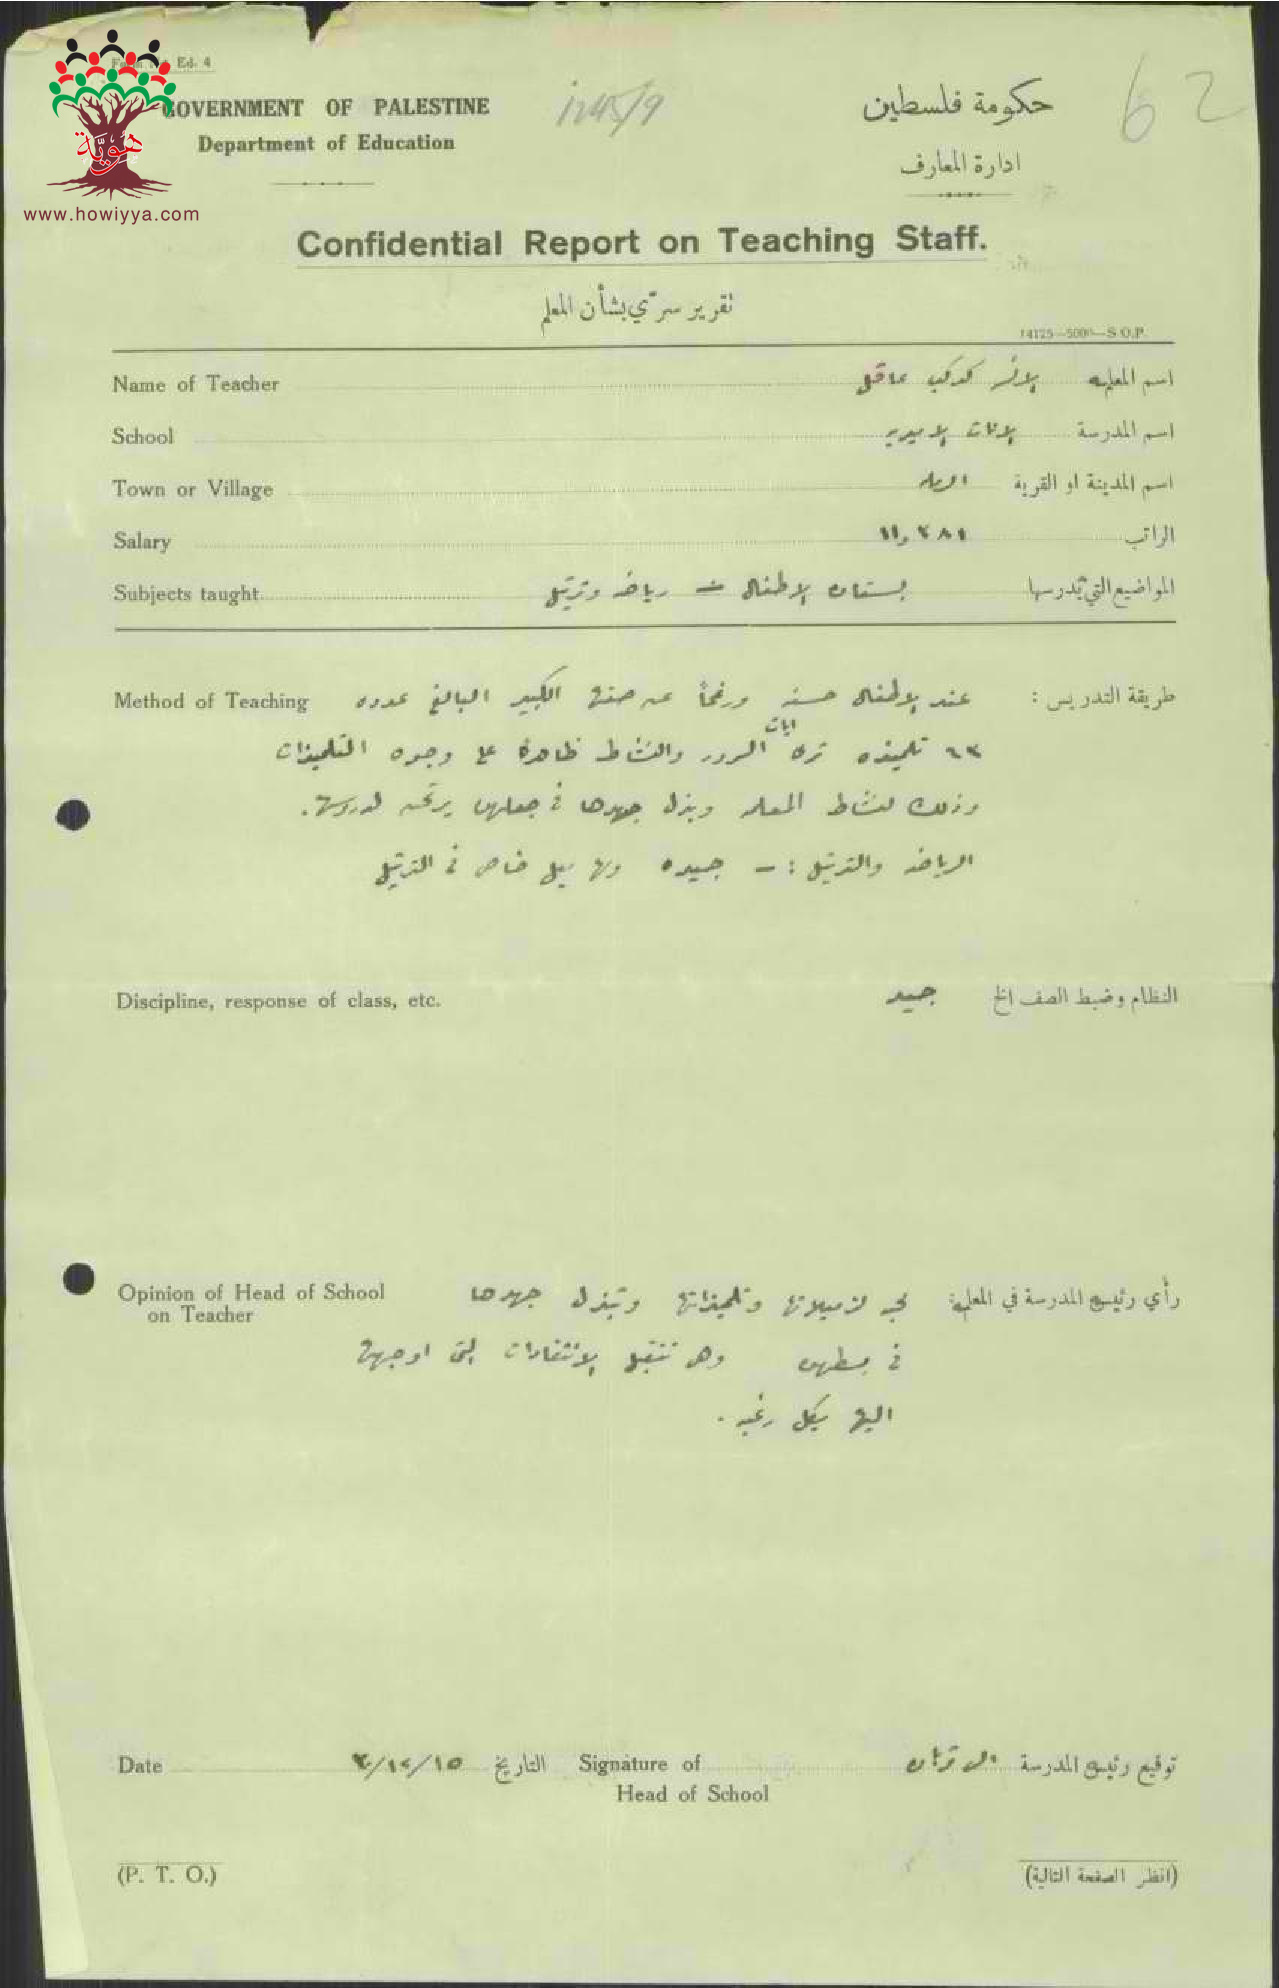 Ed. 4
GOVERNMENT OF PALESTINE
Department of Education
حكومة فلسطين
ادارة المعارف
62
هوية
www.howiyya.com
Confidential Report on Teaching Staff.
تقرير سرّي بشأن المعلم
14125—5000—S.O.P.
Name of Teacher الانسه كوكب عاقل اسم المعلمه
School الاناث الاميريه اسم المدرسة
Town or Village الرمله اسم المدينة او القرية
Salary الراتب
Subjects taught بستان الاطفال – رياضه وترتيل المواضيع التي تدرسها
Method of Teaching طريقة التدريس : عند الاطفال حسنه ورغماً عن صفها الكبير البالغ عدده
٦٣ تلميذه ترى ايات السرور والنشاط ظاهرة على وجوه التلميذات
وذلك لنشاط المعلمه وبذل جهدها في جعلهن
الرياضه والترتيل :– جيده ولها ميل خاص في الترتيل
Discipline, response of class, etc. النظام وضبط الصف الخ جيد
Opinion of Head of School on Teacher رأي رئيسة المدرسة في المعلمة: لزميلاتها وتلميذاتها وتبذل جهدها
في وهي تتقبل الانتقادات التي اوجهها
اليها بكل رغبه .
Date التاريخ Signature of Head of School توقيع رئيسة المدرسة
(P. T. O.) (انظر الصفحة التالية)